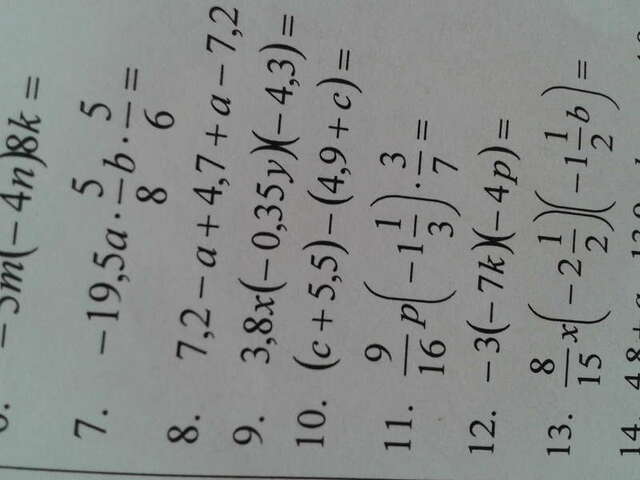 −5m(−4n)8k =
7. −19,5a · 5/8 b · 5/6 =
8. 7,2 − a + 4,7 + a − 7,2
9. 3,8x(−0,35y)(−4,3) =
10. (c + 5,5) − (4,9 + c) =
11. 9/16 p(−1 1/3) · 3/7 =
12. −3(−7k)(−4p) =
13. 8/15 x(−2 1/2)(−1 1/2 b) =
14. 4,8 +